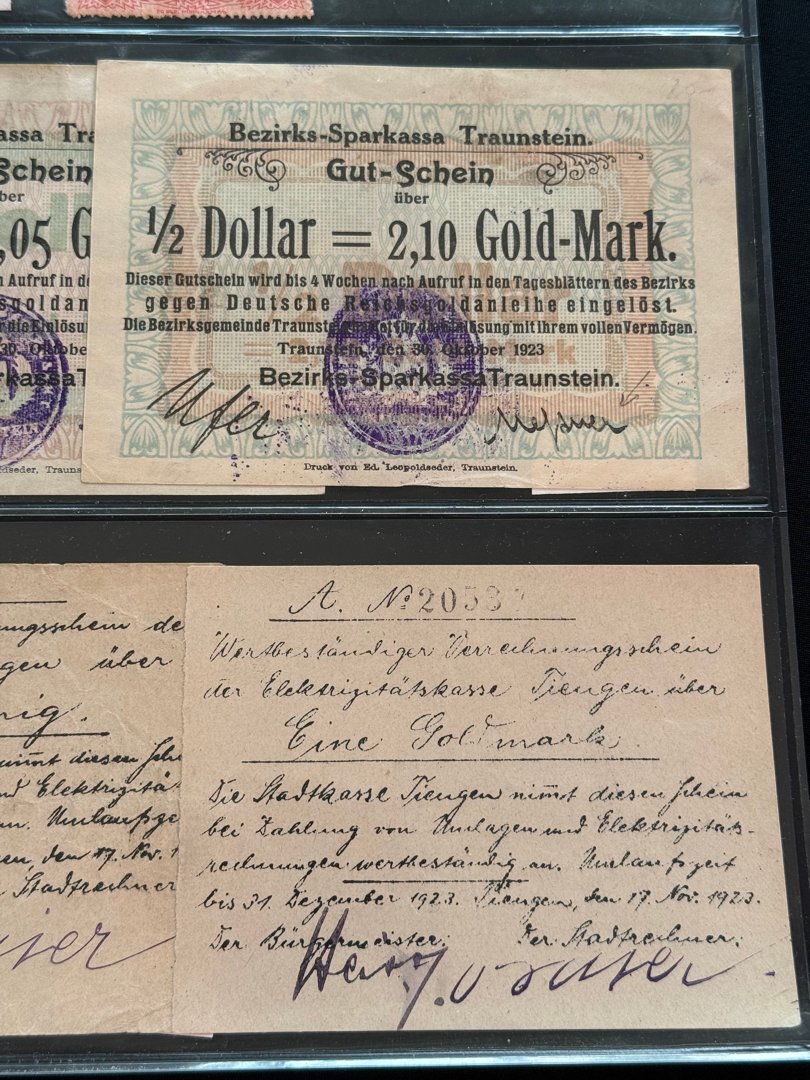 assa Tra
Schein
ber
,05 G
n Aufruf in de
sgoldan
r die Einlösu
30. Oktober
rkassa T
fdseder, Trauns
Bezirks-Sparkassa Traunstein.
Gut-Schein
über
½ Dollar = 2,10 Gold-Mark.
Dieser Gutschein wird bis 4 Wochen nach Aufruf in den Tagesblättern des Bezirks
gegen Deutsche Reichsgoldanleihe eingelöst.
Die Bezirksgemeinde Traunstein haftet für die Einlösung mit ihrem vollen Vermögen.
Traunstein, den 30. Oktober 1923
Bezirks-Sparkassa Traunstein.
Ufer
Meßner
Druck von Ed. Leopoldseder, Traunstein.
ungsschein de
gen über
nig.
nim̅t diesen Schei
nd Elektrizitä
n. Umlaufsze
en, den 17. Nov. 1
Stadtrechner
A. № 20537
Wertbeständiger Verrechnungsschein
der Elektrizitätskasse Tiengen über
Eine Goldmark.
Die Stadtkasse Tiengen nim̅t diesen Schein
bei Zahlung von Umlagen und Elektrizitäts-
rechnungen wertbeständig an. Umlaufszeit
bis 31. Dezember 1923. Tiengen, den 17. Nov. 1923.
Der Bürgermeister: Der Stadtrechner: